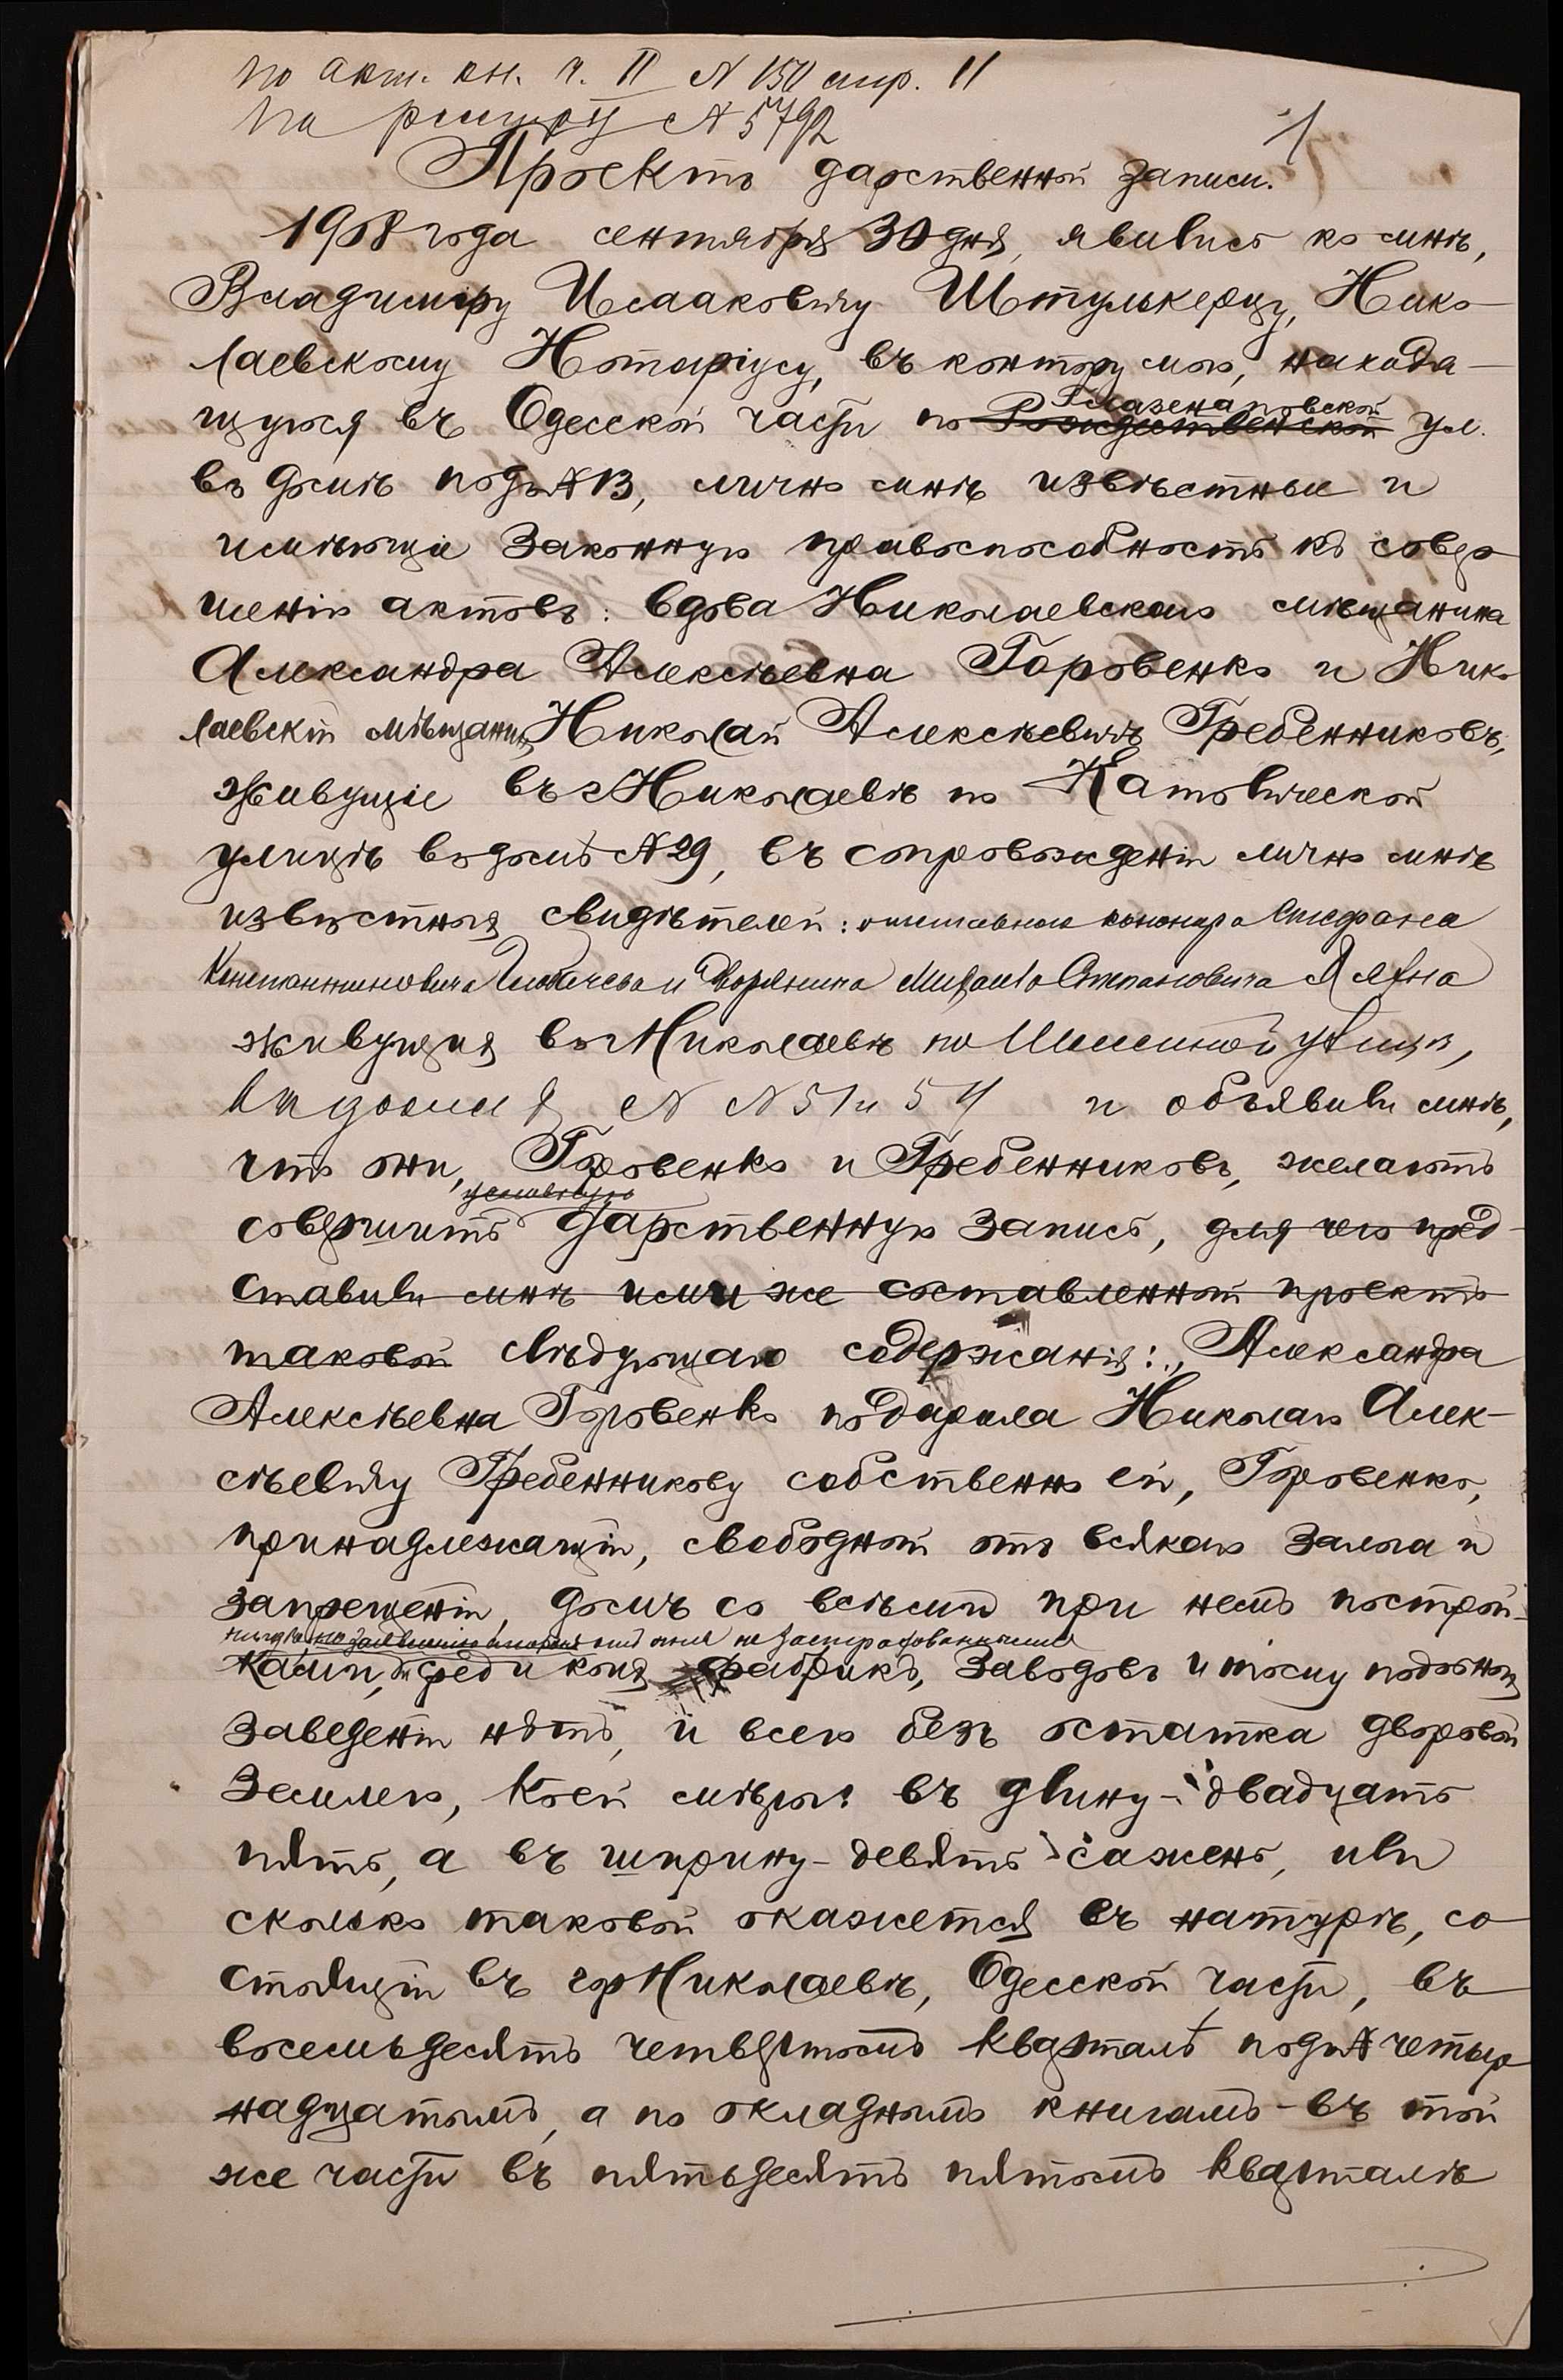 по акт. кн. ч. II № 150 стр. 11
по реестру № 5792
1
Проектъ дарственной записи.
1908 года сентября 30 дня, явились ко мнѣ,
Владимиру Исааковичу Штулькерцу, Нико-
лаевскому Нотаріусу, въ контору мою, находя-
Глазенаповской
щуюся въ Одесской части по Рождественской ул.
въ домѣ подъ № 13, лично мнѣ извѣстные и
имѣющіе законную правоспособность къ совер-
шенію актовъ: вдова Николаевскаго мѣщанина
Александра Алексѣевна Горовенко и Нико-
лаевскій мѣщанинъ Николай Алексѣевичъ Гребенниковъ,
живущіе въ г. Николаевѣ по Католической
улицѣ въ домѣ № 29, въ сопровожденіи лично мнѣ
извѣстныхъ свидѣтелей: отставного Стефана
Константиновича и дворянина Михаила Степановича
живущихъ въ г. Николаевѣ по улицѣ,
въ домахъ № № 51 и 54 и объявили мнѣ,
что они, Горовенко и Гребенниковъ, желаютъ
условную
совершить дарственную запись, для чего пред-
ставили мнѣ ими же составленный проектъ
таковой слѣдующаго содержанія: Александра
Алексѣевна Горовенко подарила Николаю Алек-
сѣевичу Гребенникову собственно ей, Горовенко,
принадлежащій, свободный отъ всякаго залога и
запрещенія, домъ со всѣми при немъ построй-
нигдѣ по заявленію сторонъ отъ огня не застрахованными
ками, среди коихъ фабрикъ, заводовъ и тому подобныхъ
заведеній нѣтъ, и всею безъ остатка дворовой
землею, коей мѣрою: въ длину - двадцать
пять, а въ ширину - девять сажень, или
сколько таковой окажется въ натурѣ, со-
стоящій въ гор. Николаевѣ, Одесской части, въ
восемьдесятъ четвертомъ кварталѣ подъ № четыр-
надцатымъ, а по окладнымъ книгамъ - въ той
же части въ пятьдесятъ пятомъ кварталѣ